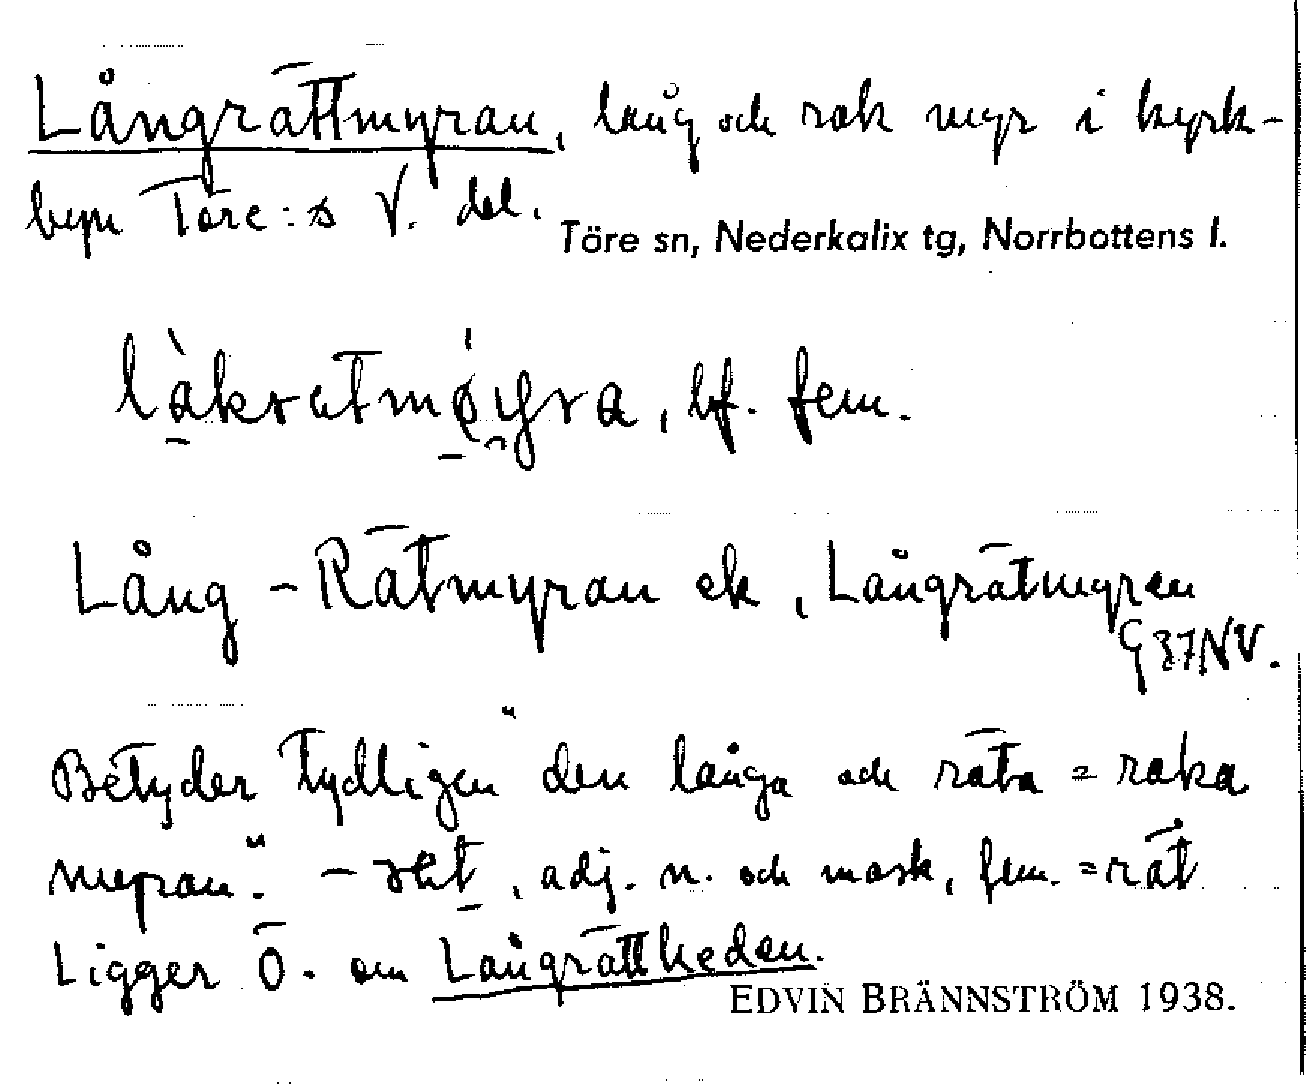 Långrättmyran, lång och rak myr i kyrk-
byn Töre:s V. del.
Töre sn, Nederkalix tg, Norrbottens l.
bf. fem.
Lång-Rätmyran ek, Långrätmyran
G37NV.
Betyder tydligen "den långa och räta = raka
myran". – adj. n. och mask, fem. = rät
Ligger Ö. om Långrättheden.
EDVIN BRÄNNSTRÖM 1938.